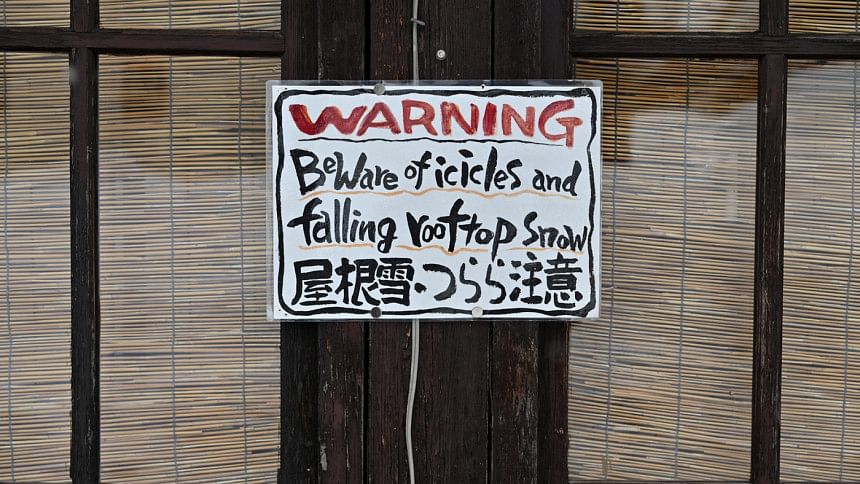 WARNING
Beware of icicles and
falling rooftop snow
屋根雪・つらら注意